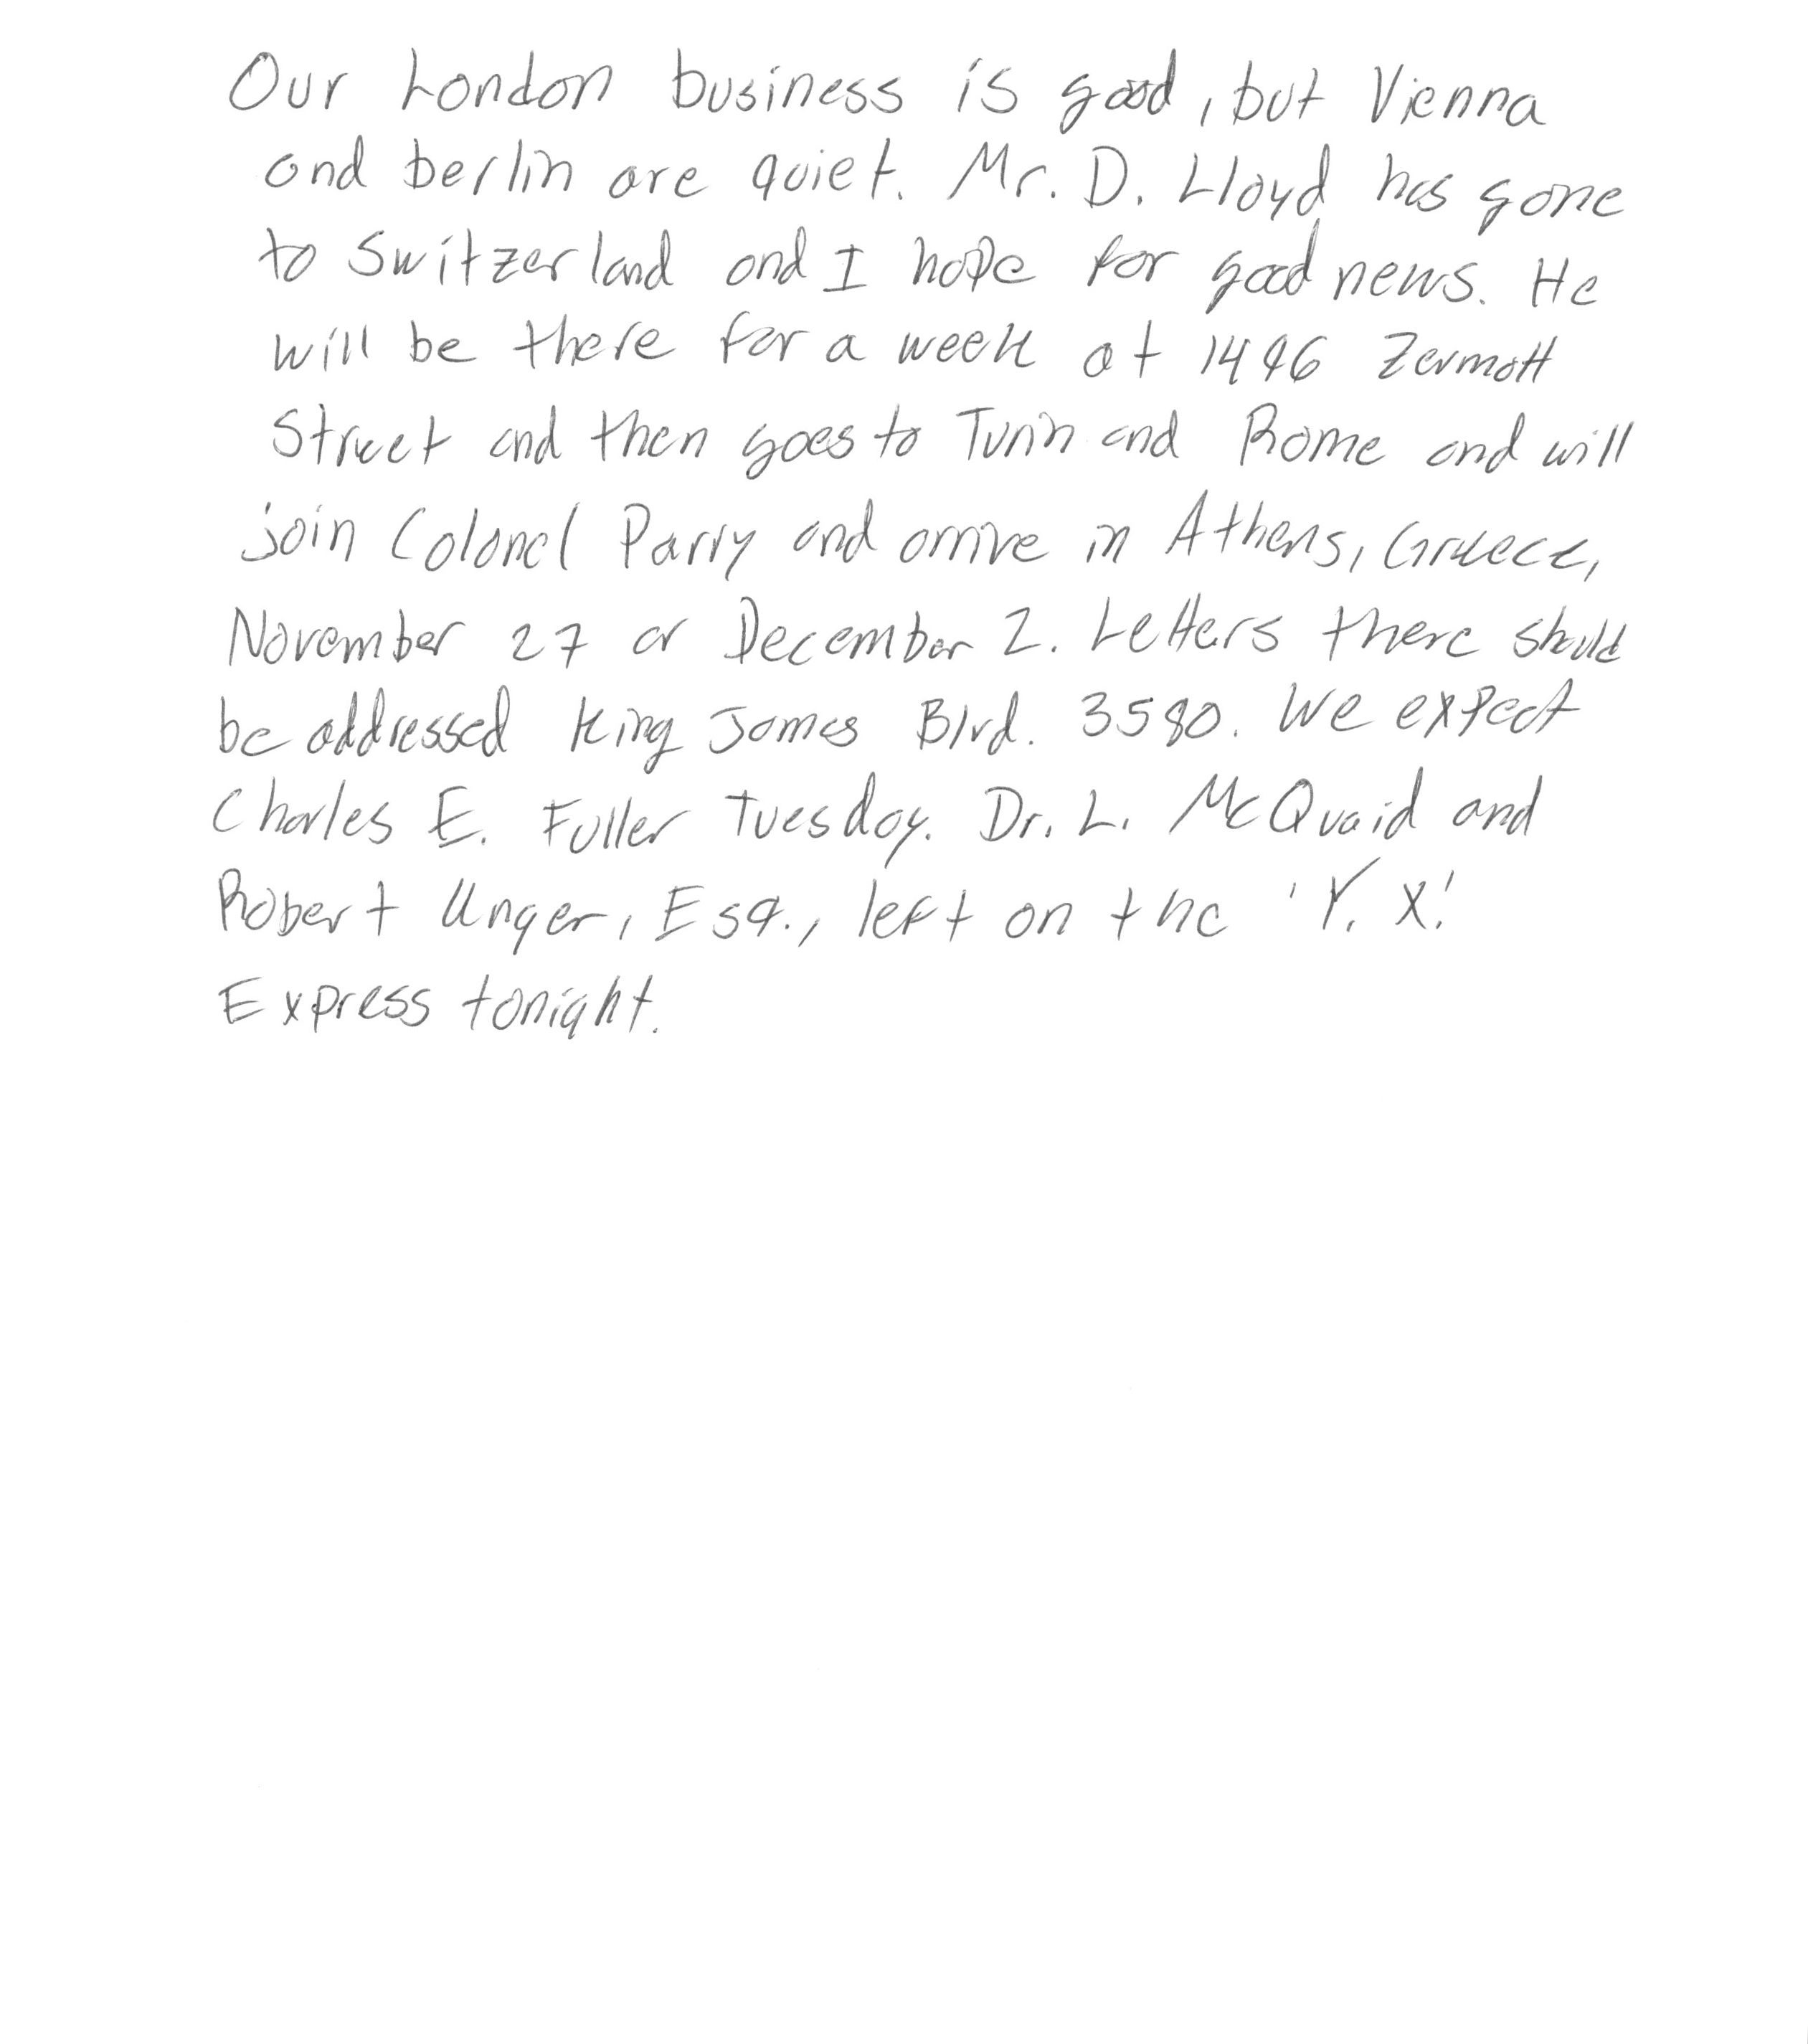 Our London business is good, but Vienna
and berlin are quiet. Mr. D. Lloyd has gone
to Switzerland and I hope for good news. He
will be there for a week at 1496 Zermott
Street and then goes to Turin and Rome and will
join Colonel Parry and arrive in Athens, Greece,
November 27 or December 2. Letters there should
be addressed King James Blvd. 3580. We expect
Charles E. Fuller Tuesday. Dr. L. McQuaid and
Robert Unger, Esq., left on the 'Y. X.'
Express tonight.